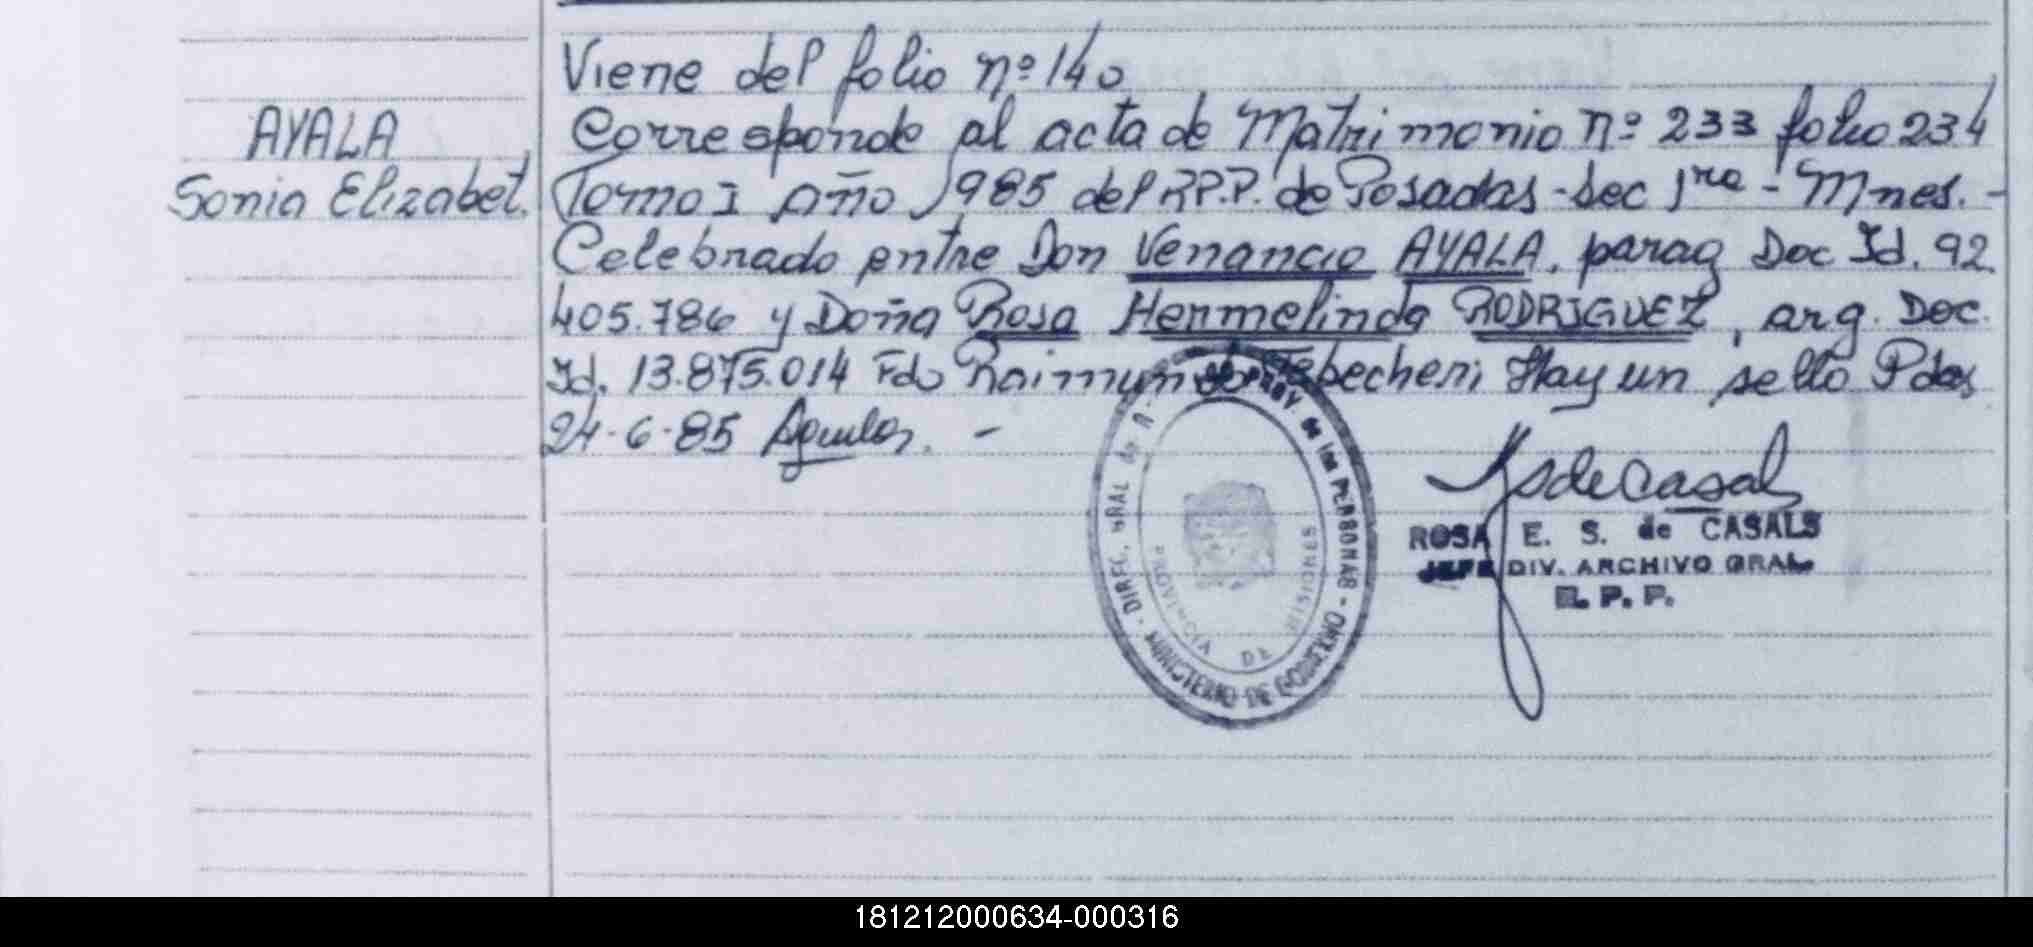 Viene del folio nº 140
AYALA
Sonia Elizabet.
Corresponde al acta de Matrimonio nº 233 folio 234
Tomo I Año 1985 del R.P.P. de Posadas - Sec 1ra - Mnes. -
Celebrado entre Don Venancio AYALA, parag Doc Id. 92
405.786 y Doña Rosa Hermelinda RODRIGUEZ, arg. Doc.
Id. 13.875.014 Fdo Raimundo Tebecheri Hay un sello Pdas
24-6-85 . -
DIREC. GRAL de PROV. de las PERSONAS - MINISTERIO DE GOBIERNO -
PROVINCIA DE MISIONES
ROSA E. S. de CASALS
JEFE DIV. ARCHIVO GRAL.
R. P. P.
181212000634-000316